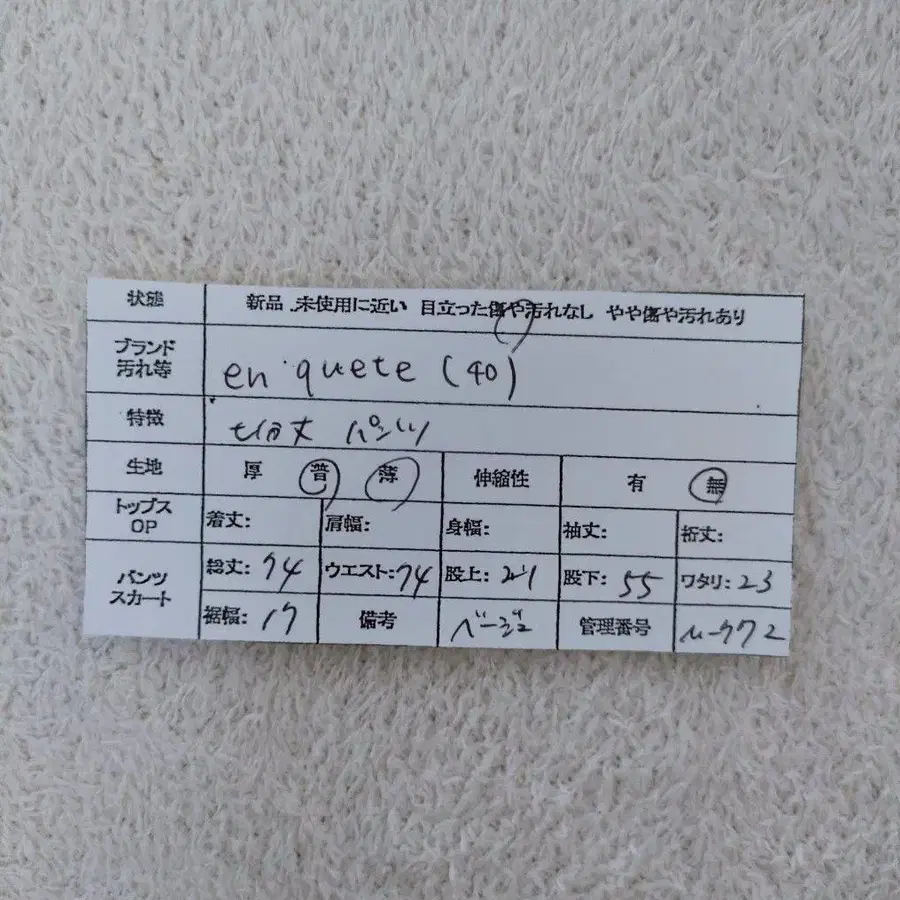 状態 新品 .未使用に近い 目立った傷や汚れなし やや傷や汚れあり
ブランド
汚れ等 en quete (40)
特徴 七分丈 パンツ
生地 厚 普 薄 伸縮性 有 無
トップス
OP 着丈: 肩幅: 身幅: 袖丈: 裄丈:
パンツ
スカート 総丈: 74 ウエスト: 74 股上: 21 股下: 55 ワタリ: 23
裾幅: 17 備考 ベージュ 管理番号